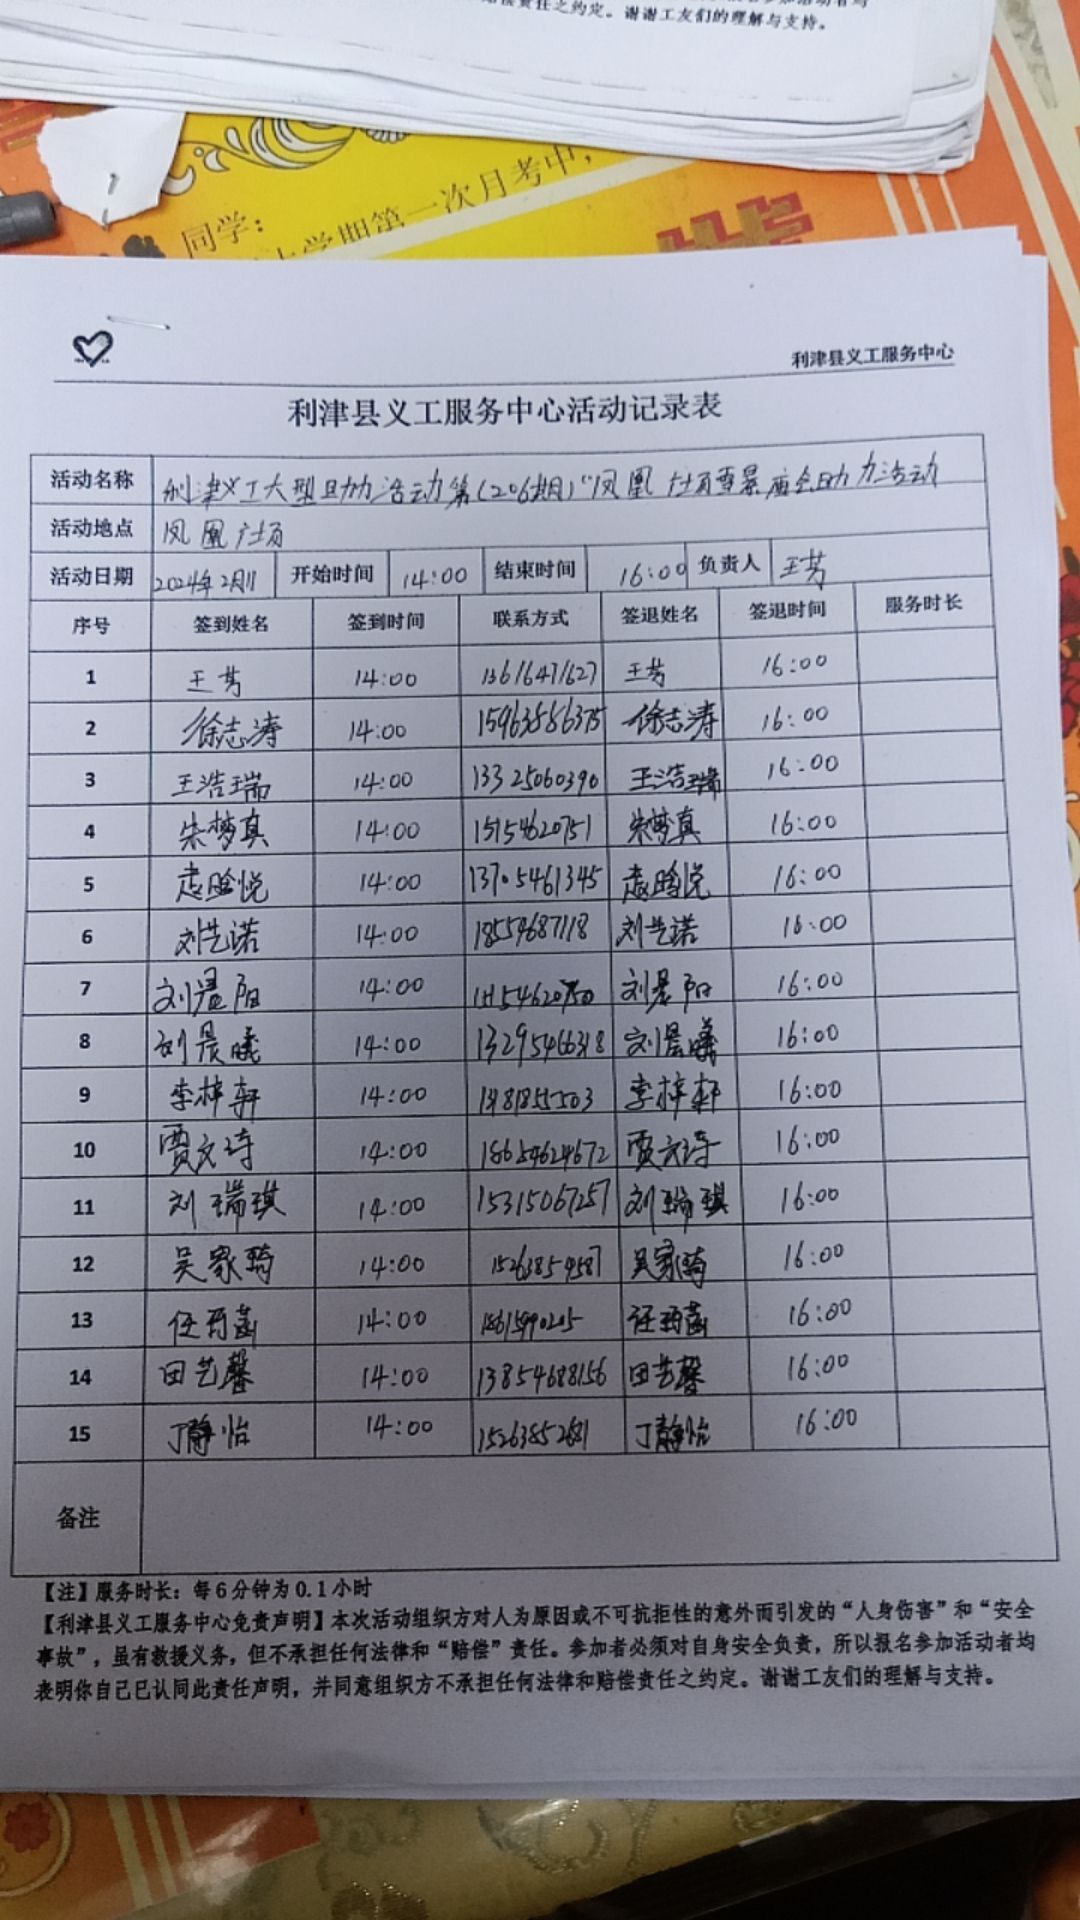 赔偿责任之约定。谢谢工友们的理解与支持。
同学:
上学期第一次月考中,
利津县义工服务中心
利津县义工服务中心活动记录表
活动名称 利津义工大型助力活动第(206期)"凤凰广场雪景庙会助力活动
活动地点 凤凰广场
活动日期 2024年2月11 开始时间 14:00 结束时间 16:00 负责人 王芳
序号 签到姓名 签到时间 联系方式 签退姓名 签退时间 服务时长
1 王芳 14:00 13616471627 王芳 16:00
2 徐志涛 14:00 15963886375 徐志涛 16:00
3 王浩瑞 14:00 13325060390 王浩瑞 16:00
4 朱梦真 14:00 15154620751 朱梦真 16:00
5 袁晗悦 14:00 13705461345 袁晗悦 16:00
6 刘艺诺 14:00 18554687118 刘艺诺 16:00
7 刘晨阳 14:00 刘晨阳 16:00
8 刘晨曦 14:00 13295466318 刘晨曦 16:00
9 李梓轩 14:00 李梓轩 16:00
10 贾文诗 14:00 18654624672 贾文诗 16:00
11 刘瑞琪 14:00 15315067257 刘瑞琪 16:00
12 吴家琦 14:00 15263859587 吴家琦 16:00
13 任茜菡 14:00 任茜菡 16:00
14 田艺馨 14:00 13854688156 田艺馨 16:00
15 丁静怡 14:00 15263852681 丁静怡 16:00
备注
【注】服务时长:每6分钟为0.1小时
【利津县义工服务中心免责声明】本次活动组织方对人为原因或不可抗拒性的意外而引发的“人身伤害”和“安全
事故”,虽有救援义务,但不承担任何法律和“赔偿”责任。参加者必须对自身安全负责,所以报名参加活动者均
表明你自己已认同此责任声明,并同意组织方不承担任何法律和赔偿责任之约定。谢谢工友们的理解与支持。